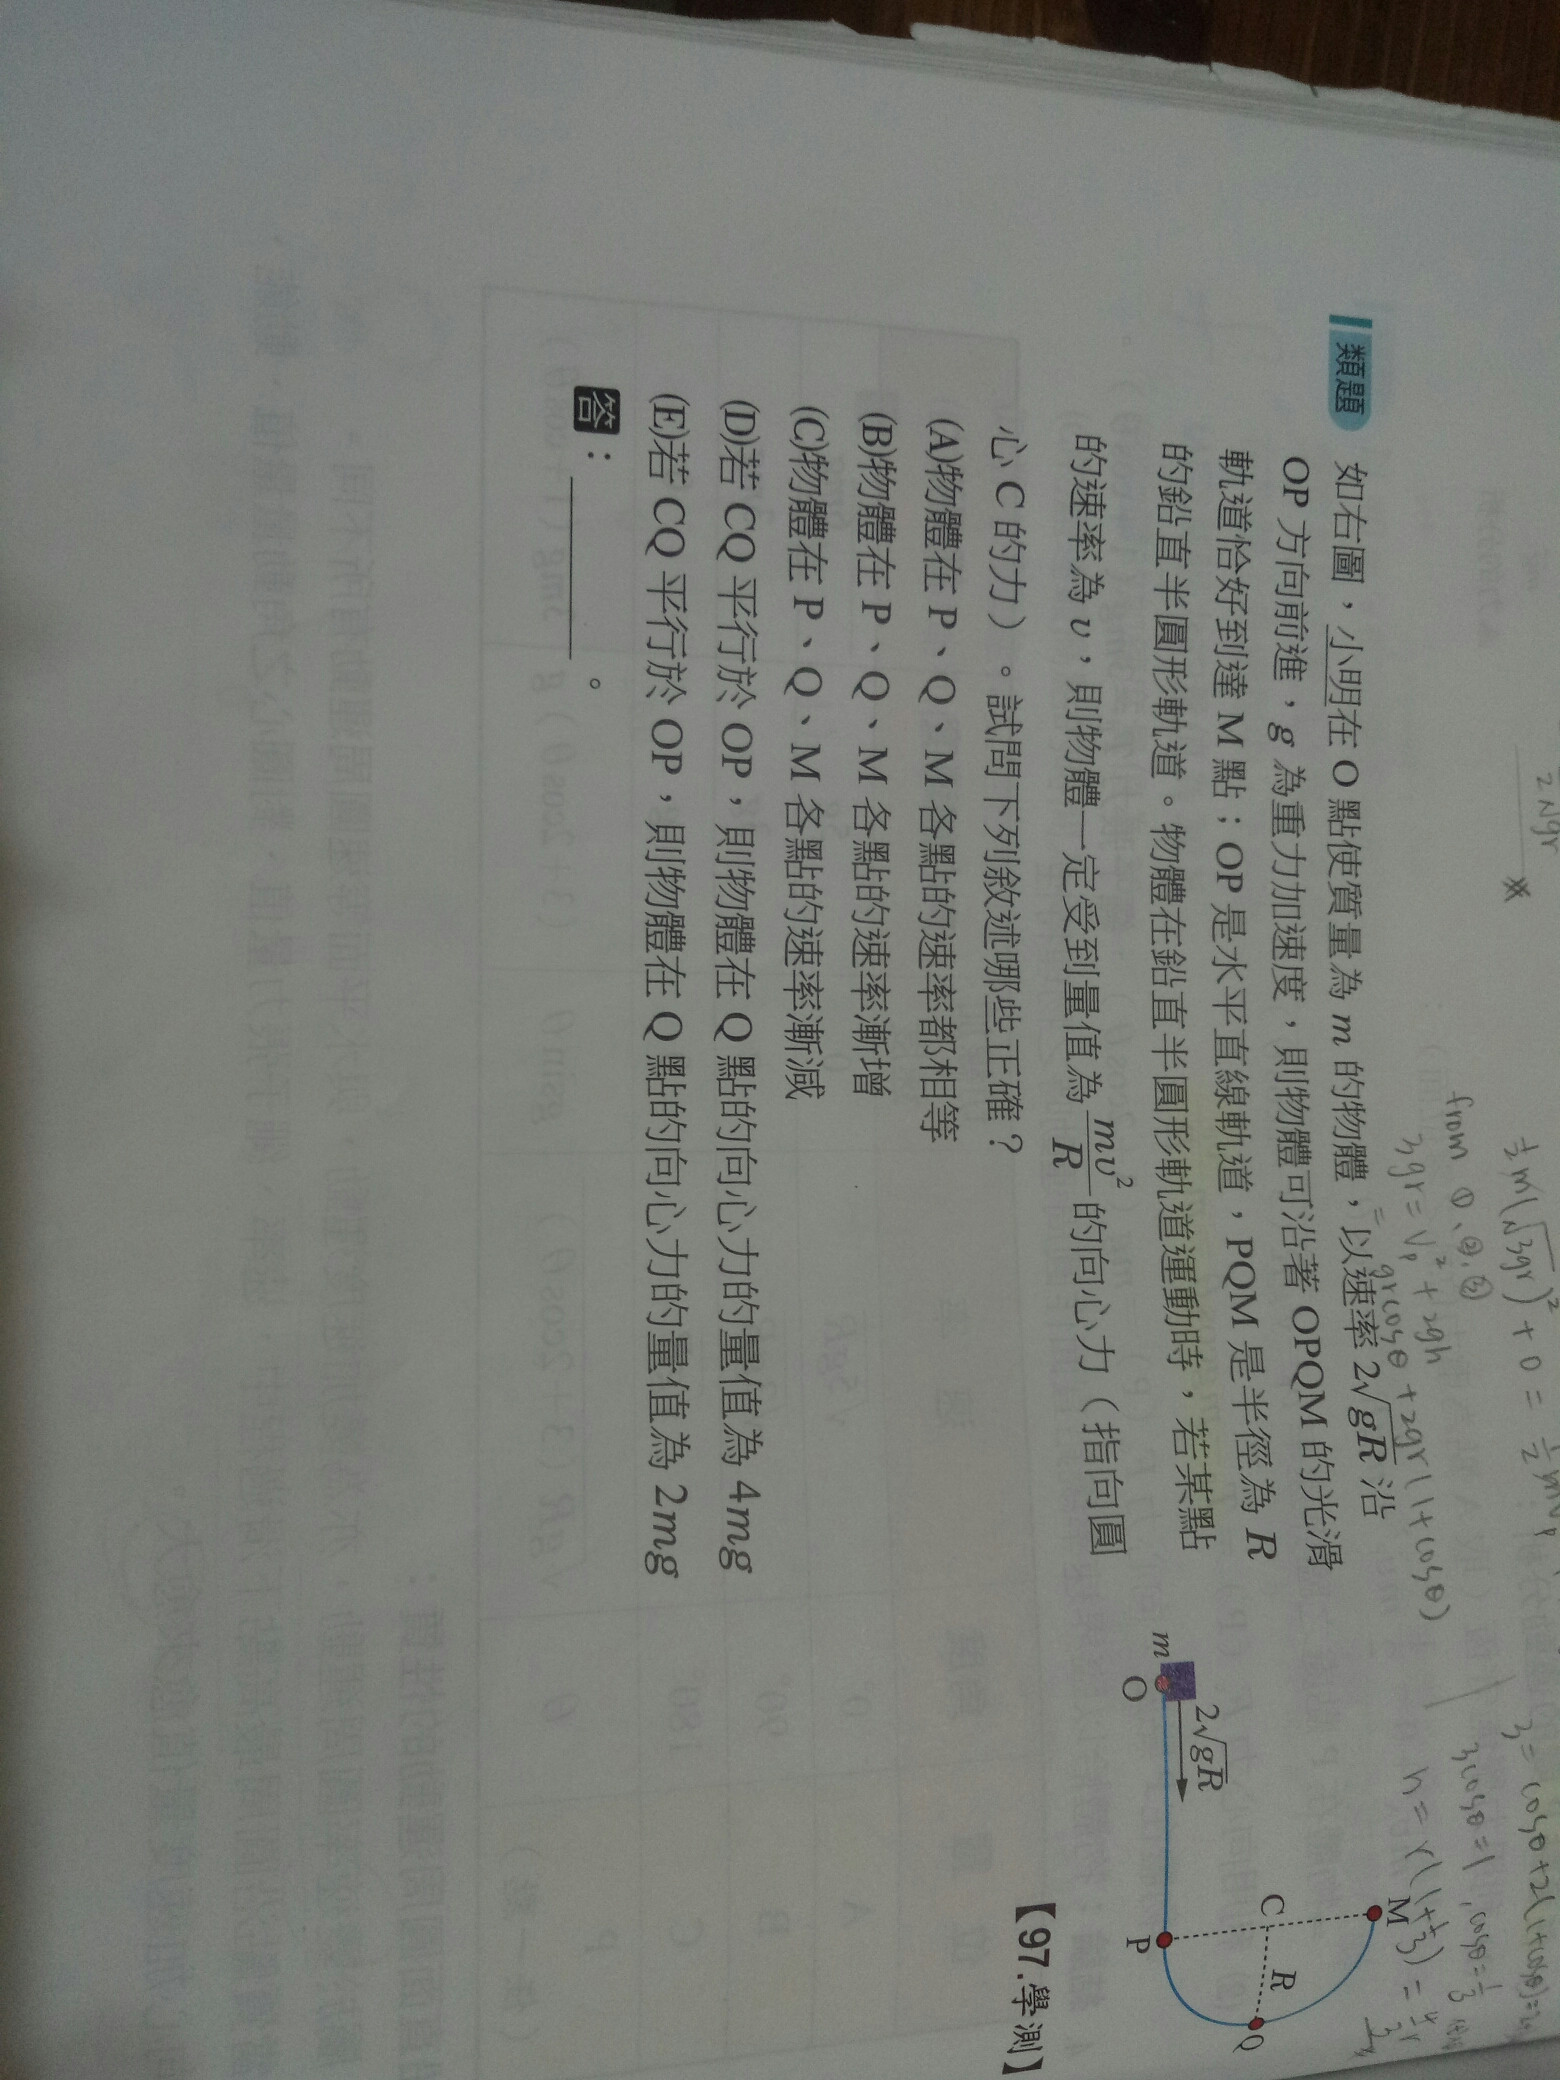 類題
如右圖，小明在 O 點使質量為 m 的物體，以速率 2√gR 沿
OP 方向前進，g 為重力加速度，則物體可沿著 OPQM 的光滑
軌道恰好到達 M 點；OP 是水平直線軌道，PQM 是半徑為 R
的鉛直半圓形軌道。物體在鉛直半圓形軌道運動時，若某點
的速率為 υ，則物體一定受到量值為 mυ²/R 的向心力（指向圓
心 C 的力）。試問下列敘述哪些正確？
(A)物體在 P、Q、M 各點的速率都相等
(B)物體在 P、Q、M 各點的速率漸增
(C)物體在 P、Q、M 各點的速率漸減
(D)若 CQ 平行於 OP，則物體在 Q 點的向心力的量值為 4mg
(E)若 CQ 平行於 OP，則物體在 Q 點的向心力的量值為 2mg
答：
。
【97.學測】
m
O
2√gR
M
C
R
Q
P
from ①、②、③
3gr = Vp² + 2gh
= gr cosθ + 2gr(1+cosθ)
3cosθ = 1, cosθ = 1/3
h = r(1+1/3) = 4/3 r